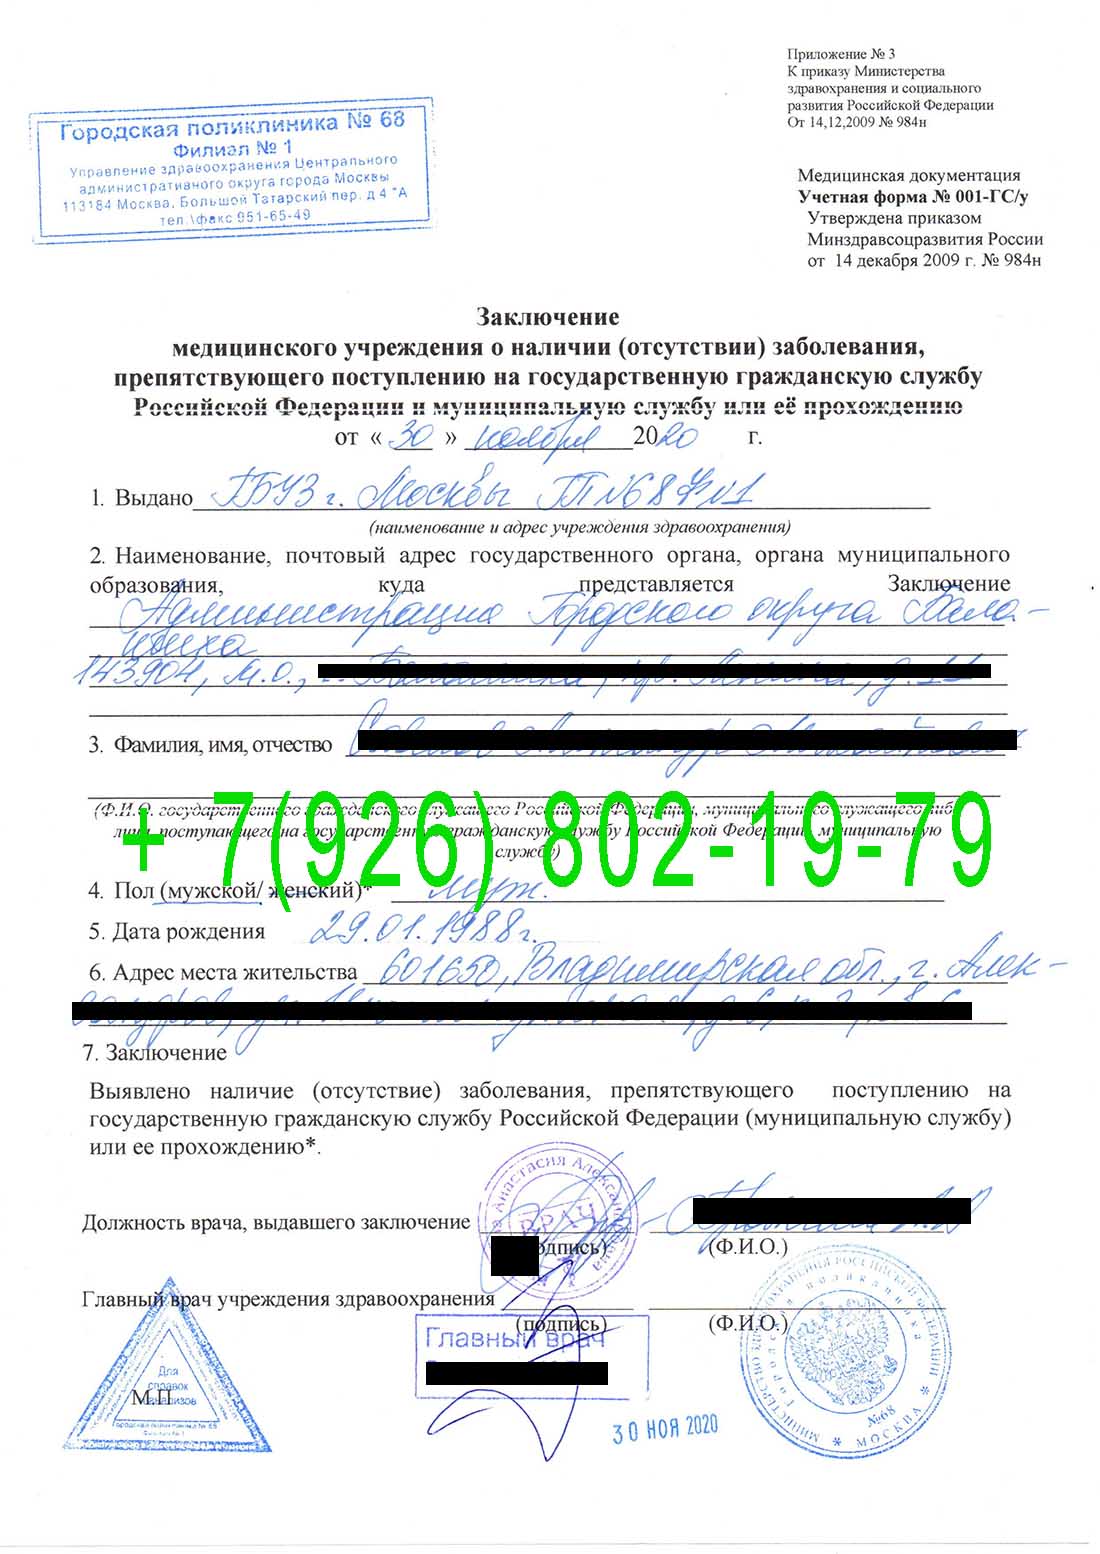 Приложение № 3
К приказу Министерства
здравохранения и социального
развития Российской Федерации
От 14,12,2009 № 984н
Городская поликлиника № 68
Филиал № 1
Управление здравоохранения Центрального
административного округа города Москвы
113184 Москва, Большой Татарский пер. д 4 "А
тел.\факс 951-65-49
Медицинская документация
Учетная форма № 001-ГС/у
Утверждена приказом
Минздравсоцразвития России
от 14 декабря 2009 г. № 984н
Заключение
медицинского учреждения о наличии (отсутствии) заболевания,
препятствующего поступлению на государственную гражданскую службу
Российской Федерации и муниципальную службу или её прохождению
от « 30 » ноября 2020 г.
1. Выдано ГБУЗ г. Москвы ГП №68 Ф№1
(наименование и адрес учреждения здравоохранения)
2. Наименование, почтовый адрес государственного органа, органа муниципального
образования, куда представляется Заключение
Администрация Городского округа Бала-
шиха
143904, М.О.,
3. Фамилия, имя, отчество
(Ф.И.О. государственного гражданского служащего Российской Федерации, муниципального служащего либо
лица, поступающего на государственную гражданскую службу Российской Федерации, муниципальную
службу)
+ 7(926) 802-19-79
4. Пол (мужской/ женский)* муж.
5. Дата рождения 29.01.1988г.
6. Адрес места жительства 601650, Владимирская обл., г. Алек-
7. Заключение
Выявлено наличие (отсутствие) заболевания, препятствующего поступлению на
государственную гражданскую службу Российской Федерации (муниципальную службу)
или ее прохождению*.
Анастасия Александровна
ВРАЧ
Должность врача, выдавшего заключение
(подпись) (Ф.И.О.)
Главный врач учреждения здравоохранения
(подпись) (Ф.И.О.)
Главный врач
Для
справок
анализов
М.П
Городская поликлиника № 68
Филиал № 1
30 НОЯ 2020
МИНИСТЕРСТВО ЗДРАВООХРАНЕНИЯ РОССИЙСКОЙ ФЕДЕРАЦИИ * МОСКВА *
Городская поликлиника
№68